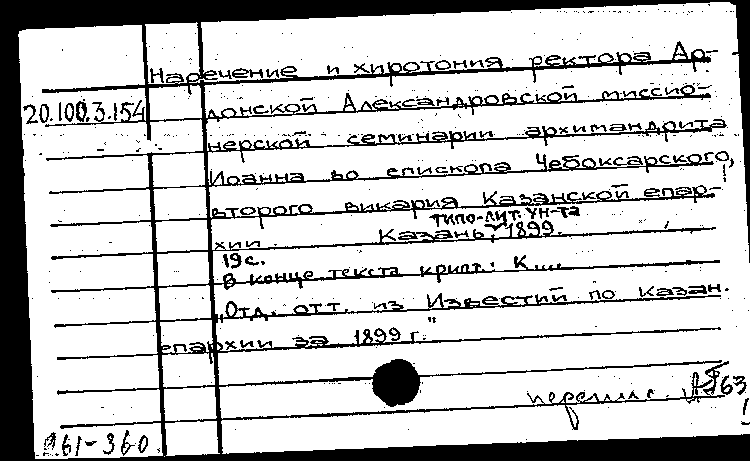 Наречение и хиротония ректора Ар-
20.100.3.154 донской Александровской миссио-
нерской семинарии архимандрита
Иоанна во епископа Чебоксарского,
второго викария Казанской епар-
хии. Казань, типо-лит. ун-та 1899.
19 с.
В конце текста крипт.: К....
"Отд. отт. из Известий по Казан.
епархии за 1899 г."
перепис. 63
61-360